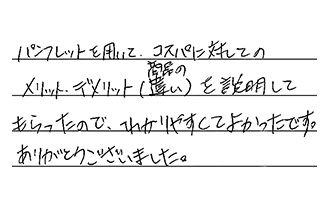 パンフレットを用いて、コスパに対しての
メリット、デメリット(商品の違い)を説明して
もらったので、わかりやすくてよかったです。
ありがとうございました。